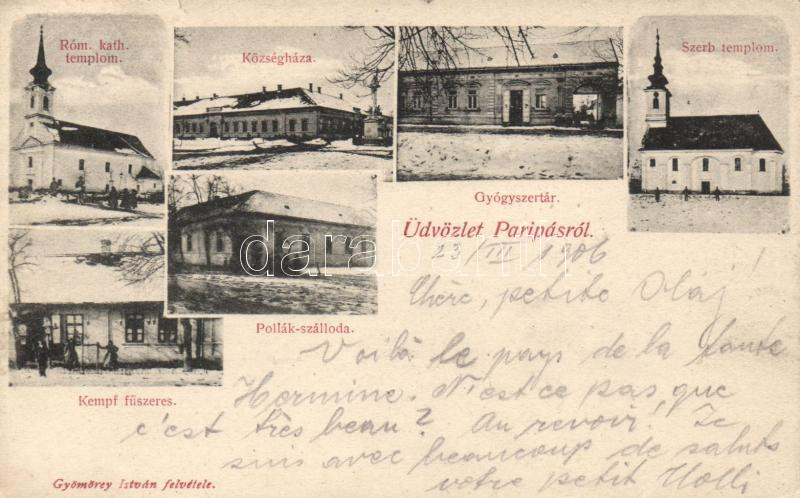 Róm. kath.
templom.
Községháza.
Gyógyszertár.
Szerb templom.
Pollák-szálloda.
Kempf fűszeres.
Üdvözlet Paripásról.
23/III 1906
Chère, petite Oláj!
Voilà le pays de la tante
Hermine. N'est ce pas, que
c'est très beau? Au revoir! Je
suis avec beaucoup de saluts
votre petit Holli
Gyömörey István felvétele.
darabanth.com